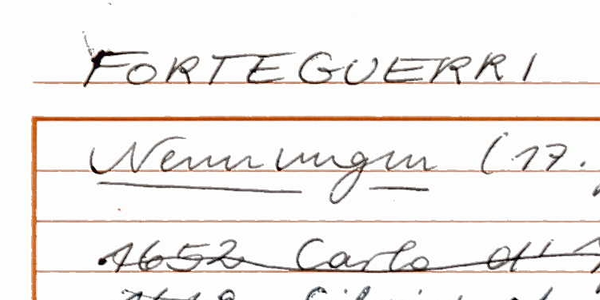 FORTEGUERRI
Nennungen (17.
1652 Carlo d'